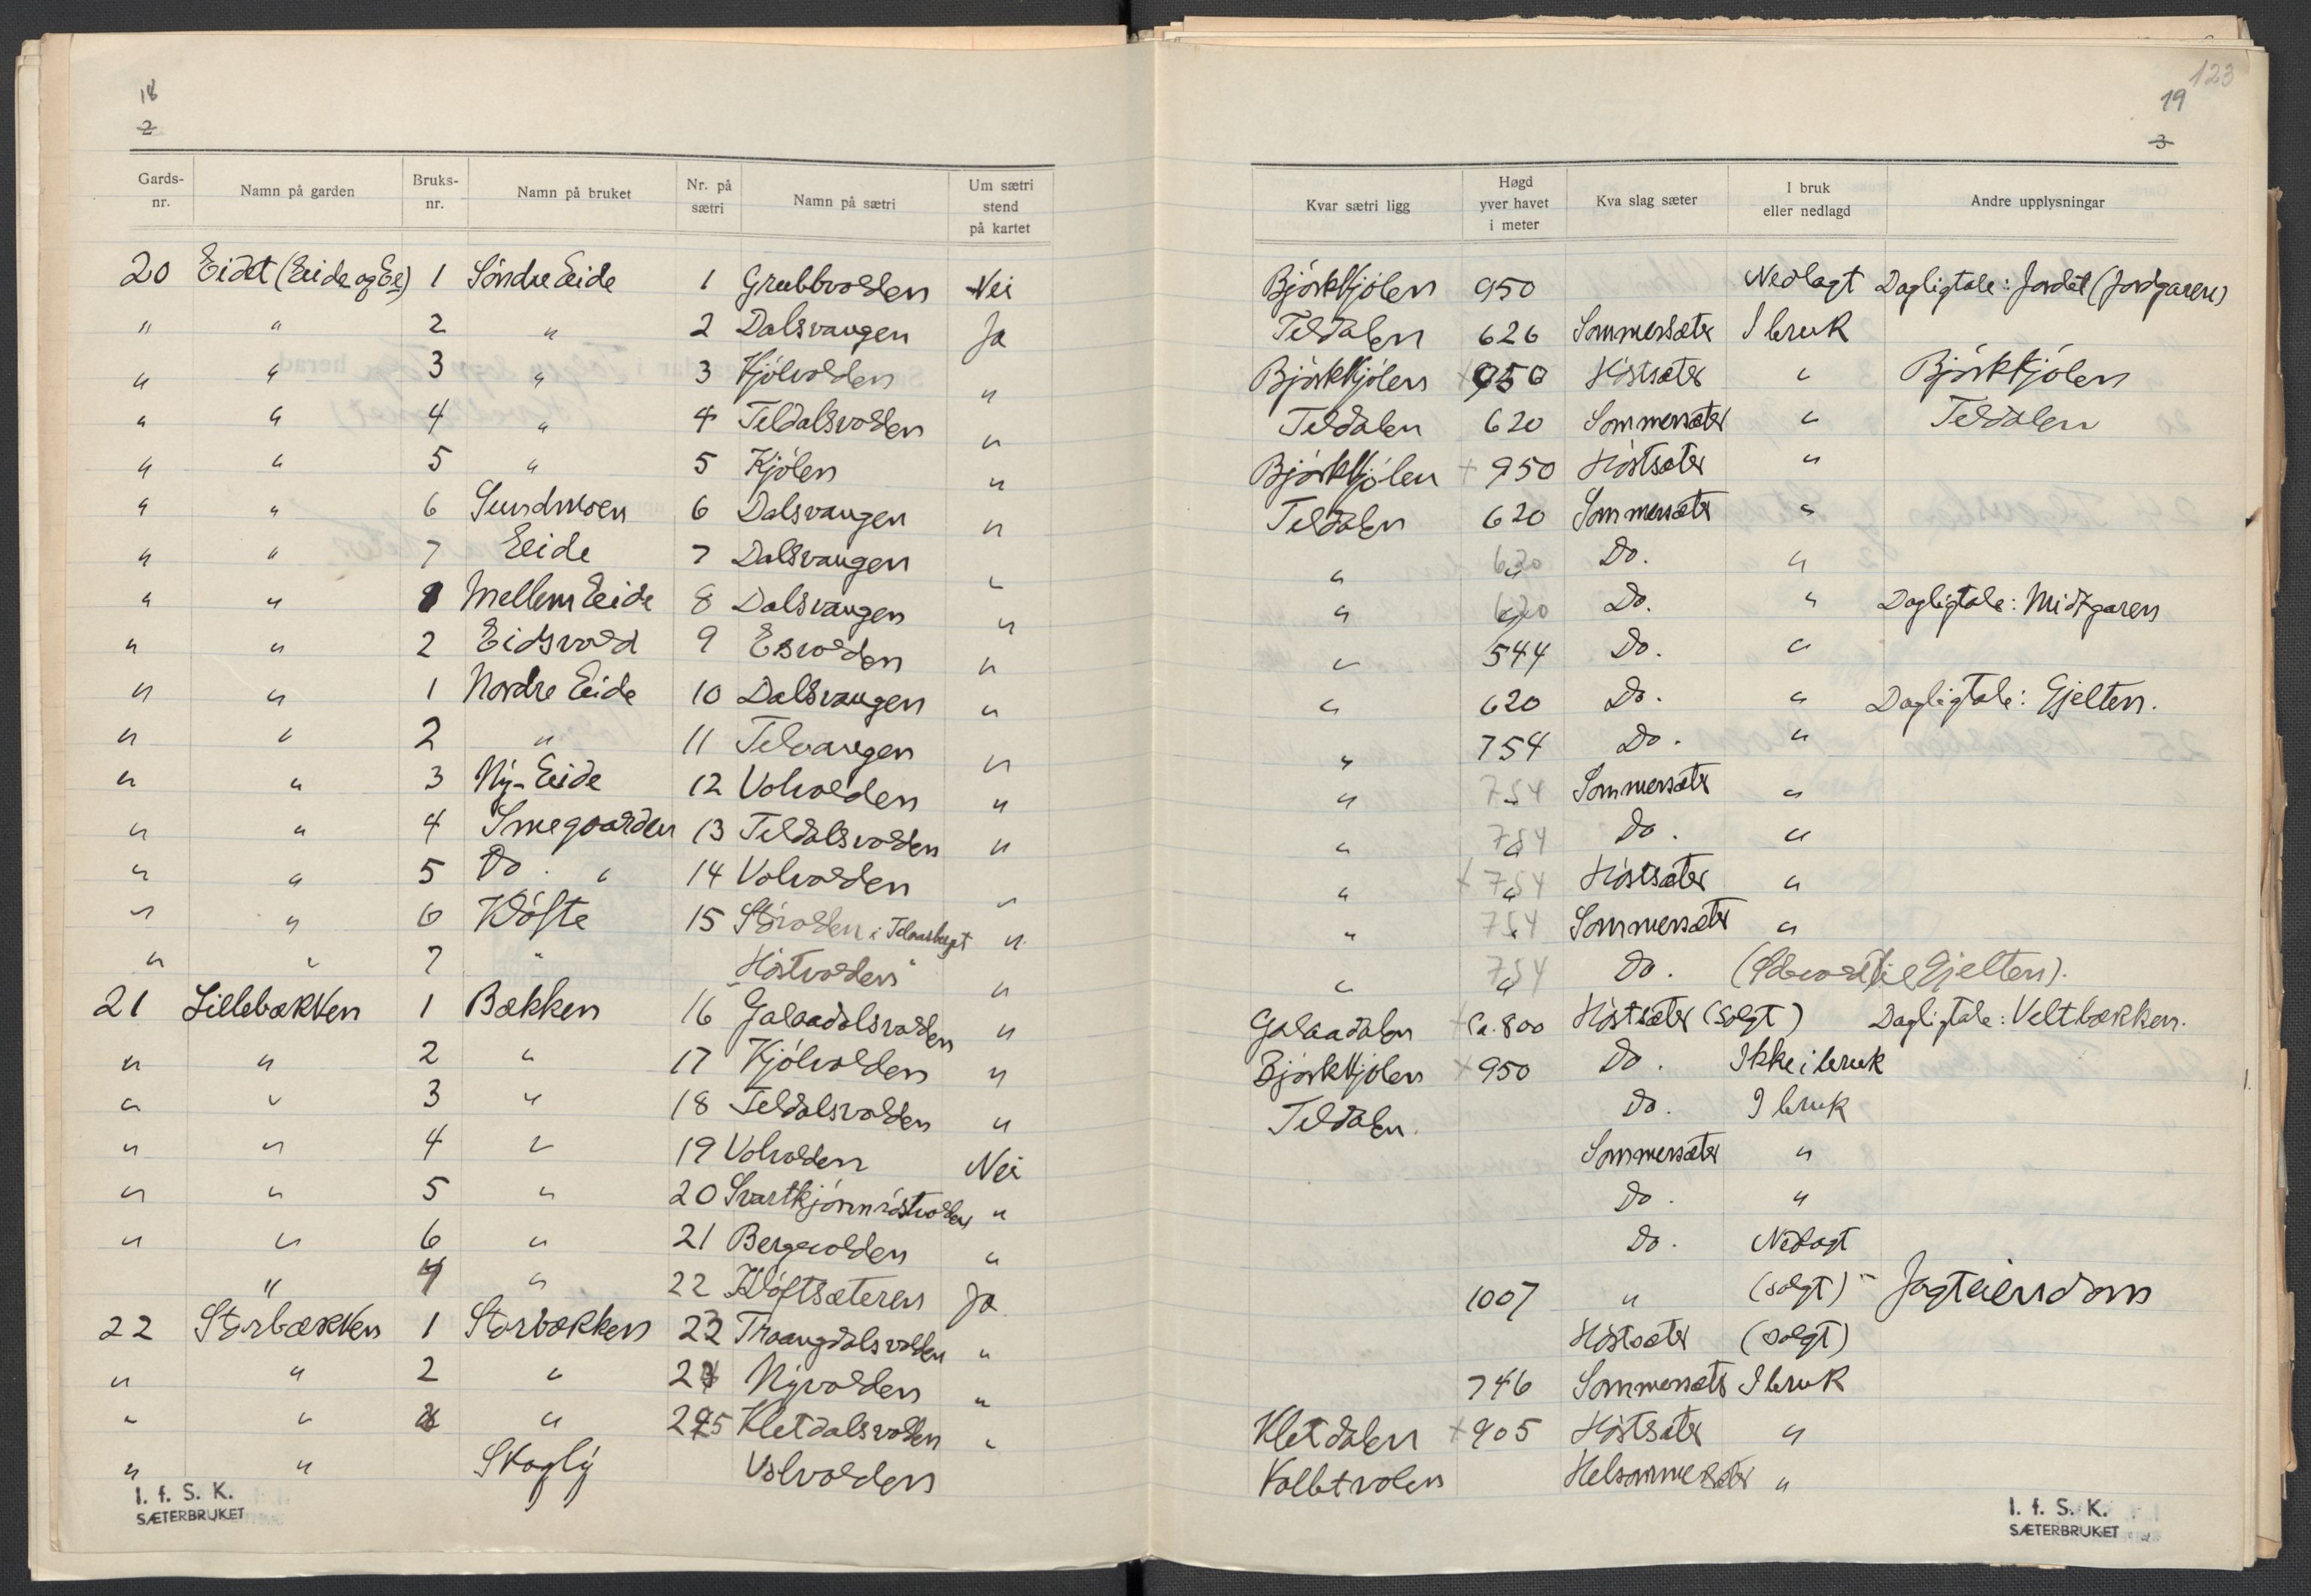 18
2
Gards-nr. Namn på garden Bruks-nr. Namn på bruket Nr. på sætri Namn på sætri Um sætri stend på kartet
20 Eidet (Eide og Ei) 1 Söndre Eide 1 Grubbvolden Nei
" " 2 " 2 Dalsvangen Ja
" " 3 " 3 Kjölvolden "
" " 4 " 4 Teldalsvolden "
" " 5 " 5 Kjölen "
" " 6 Sundmoen 6 Dalsvangen "
" " 7 Eide 7 Dalsvangen "
" " 1 Mellem Eide 8 Dalsvangen "
" " 2 Eidsvold 9 Esvolden "
" " 1 Nordre Eide 10 Dalsvangen "
" " 2 " 11 Telvangen "
" " 3 Ny-Eide 12 Volvolden "
" " 4 Smegaarden 13 Teldalsvolden "
" " 5 Do. " 14 Volvolden "
" " 6 Klöfte 15 Störvolden i "
" " 7 " Höstvolden "
21 Lillebækken 1 Bækken 16 Galaadalsvolden "
" " 2 " 17 Kjölvolden "
" " 3 " 18 Teldalsvolden "
" " 4 " 19 Volvolden Nei
" " 5 " 20 Svartkjönnröstvolden "
" " 6 " 21 Bergevolden "
" 7 " 22 Klöftsæteren Ja
22 Storbækken 1 Storbækken 23 Traangdalsvolden "
" " 2 " 24 Nyvolden "
" " " 25 Kletdalsvolden "
" " Skogly Volvolden
I. f. S. K.
SÆTERBRUKET
123
19
3
Kvar sætri ligg Høgd yver havet i meter Kva slag sæter I bruk eller nedlagd Andre upplysningar
Björkkjölen 950 Nedlagt Dagligtale: Jordet (Jordgaren)
Teldalen 626 Sommersæter I bruk
Björkkjölen + 950 Höstsæter " Björkkjölen
Teldalen 620 Sommersæter " Teldalen
Björkkjölen + 950 Höstsæter "
Teldalen 620 Sommersæter "
" 620 Do. "
" 620 Do. " Dagligtale: Midtgaren
" 544 Do. "
" 620 Do. " Dagligtale: Gjelten.
" 754 Do. "
" 754 Sommersæter "
" 754 Do. "
" + 754 Höstsæter "
" 754 Sommersæter "
" 754 Do. ( Gjelten).
Galaadalen + Ca. 800 Höstsæter (Solgt) Dagligtale: Veltbækken.
Björkkjölen + 950 Do. Ikke i bruk
Teldalen Do. I bruk
Sommersæter "
Do. "
Do. Nedlagt
1007 " (solgt) - Jagteiendom
Höstsæter (solgt)
746 Sommersæter I bruk
Kletdalen + 905 Höstsæter "
Helsommersæter "
I. f. S. K.
SÆTERBRUKET